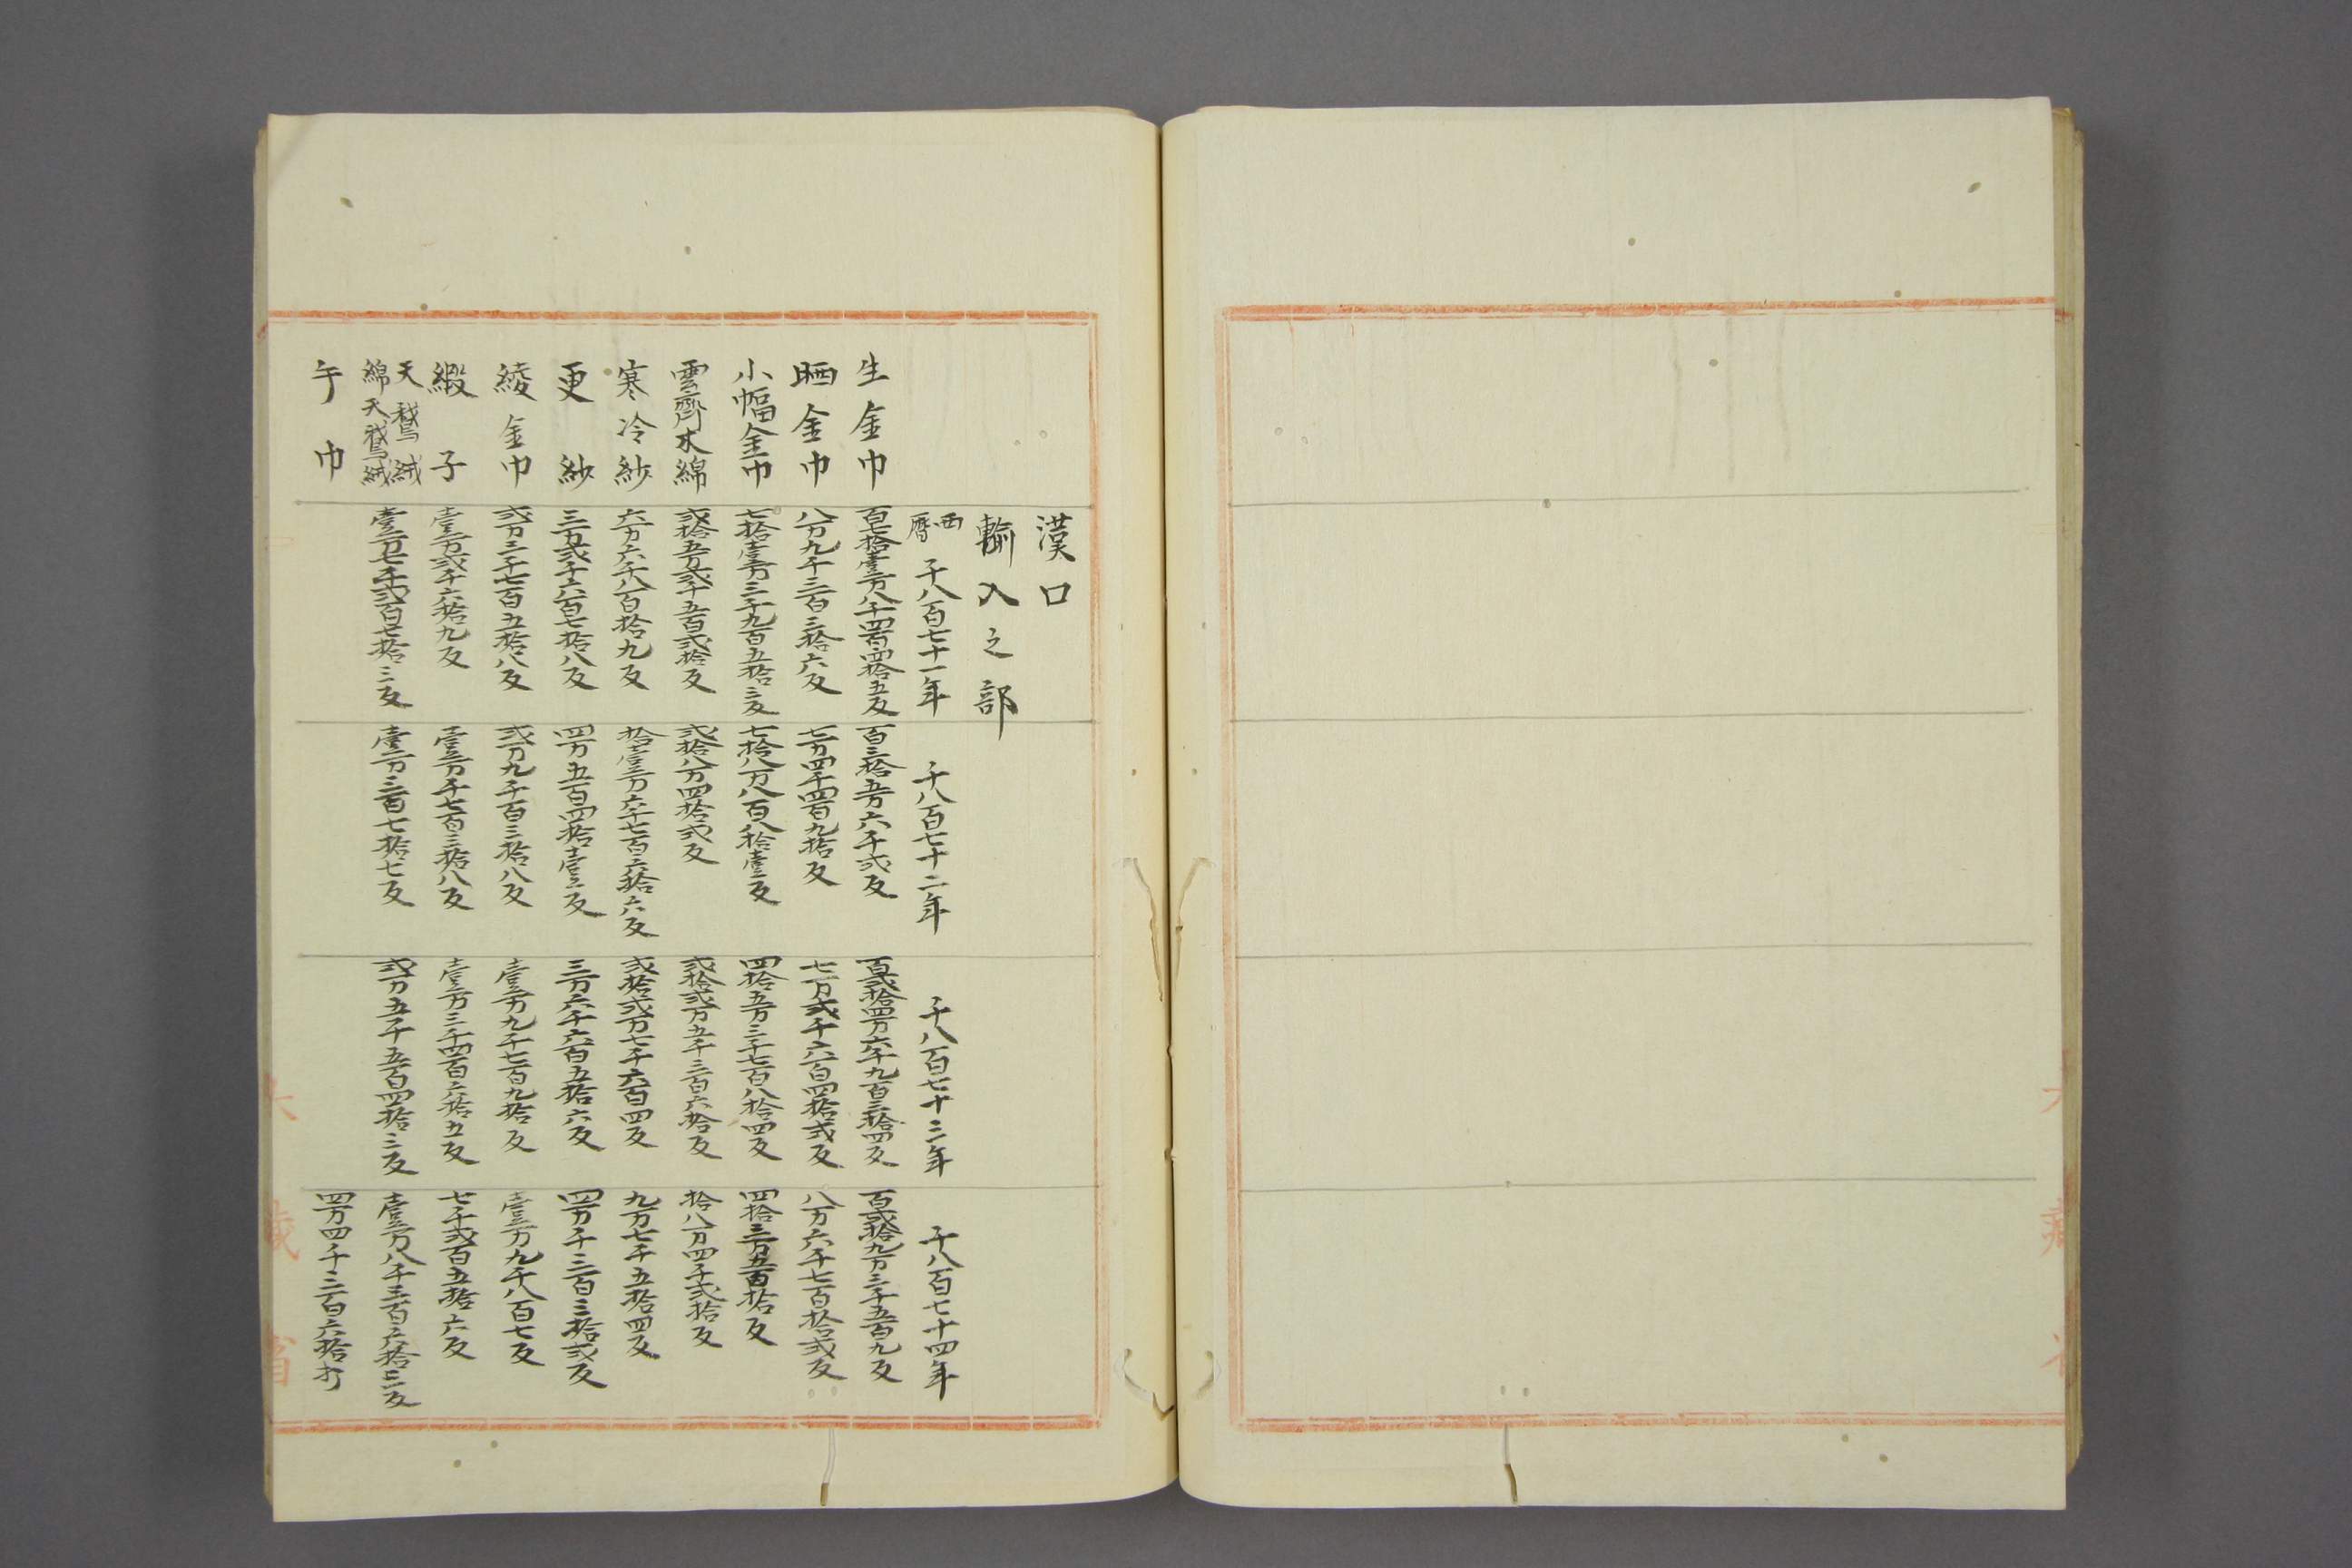 漢口
輸入之部
西暦 千八百七十一年 千八百七十二年 千八百七十三年 千八百七十四年
生金巾 百七拾壹万八千四百四拾五反 百三拾五万六千弐反 百弐拾四万六千九百三拾四反 百弐拾九万三千五百九反
晒金巾 八万九千三百三拾六反 七万四千四百九拾反 七万弐千六百四拾弐反 八万六千七百拾弐反
小幅金巾 七拾壹万三千九百五拾三反 七拾八万八百八拾壹反 四拾五万三千七百八拾四反 四拾三万五百拾反
雲齊木綿 弐拾五万弐千五百弐拾反 弐拾八万四拾弐反 弐拾弐万五千三百六拾反 拾八万四千弐拾反
寒冷紗 六万六千八百拾九反 拾壹万六千七百六拾六反 弐拾弐万七千六百四反 九万七千五拾四反
更紗 三万弐千六百七拾八反 四万五百四拾壹反 三万六千六百五拾六反 四万千三百三拾弐反
綾金巾 弐万三千七百五拾八反 弐万九千百三拾八反 壹万九千七百九拾反 壹万九千八百七反
緞子 壹万弐千六拾九反 壹万千七百三拾八反 壹万三千四百六拾五反 七千弐百五拾六反
天鵞絨 綿天鵞絨 壹万七千弐百七拾三反 壹万三百七拾七反 弐万五千五百四拾三反 壹万八千三百六拾三反
手巾 四万四千三百六拾打
大藏省